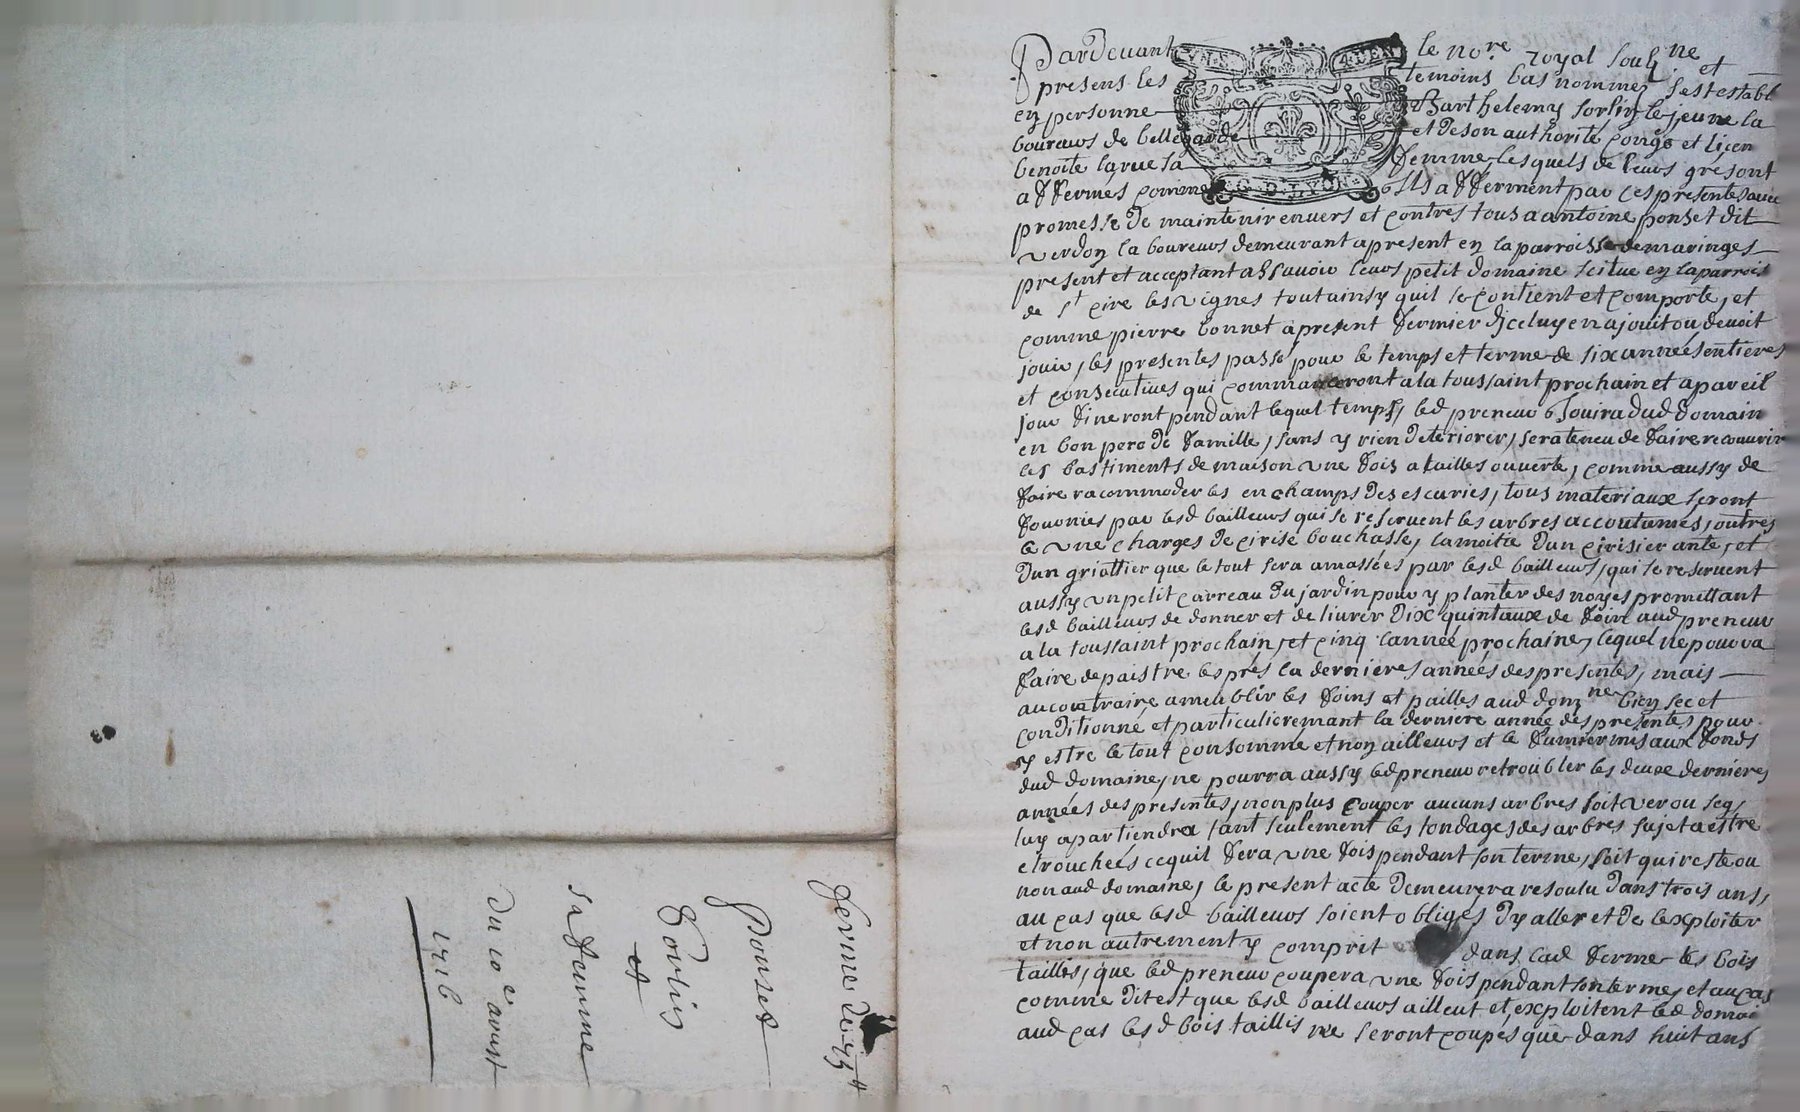 Pardevant le no.re royal soubz.ne et
presens les temoins bas nommez sest establ
en personne Barthelemy sorlin le jeune la
boureur de bellegarde et de son authorité congé et licen
benoite larue sa femme, lesquels de leurs gré sont
affermés comme ils afferment par ces presentes avec
promesse de maintenir envers et contres tous a antoine ponset dit
verdon laboureur demeurant apresent en la parroisse de maringes
present et acceptant assavoir leur petit domaine scitue en laparrois
de st cire les vignes tout ainsy quil se contient et comporte, et
comme pierre bonnet apresent fermier diceluy en a jouit ou devoit
jouir, les presentes passé pour le temps et terme de six années entieres
et consecutives qui commanceront a la toussaint prochain et a pareil
jour fineront pendant lequel temps, led preneur jouira dud domain
en bon pere de famille, sans y rien deteriorer, sera teneu de faire recouvrir
les bastiments de maison une fois a tailles ouverte, comme aussy de
faire racommoder les enchamps des escuries, tous materiaux seront
fournies par lesd bailleurs qui se reservent les arbres accoutumés, outres
une charges de cirise bouchasse, la moitie dun cirisier ante, et
dun griottier que le tout sera amassées par lesd bailleurs, qui se reservent
aussy un petit carreau du jardin pour y planter des noyes promettant
lesd bailleurs de donner et de livrer dix quintaux de foin aud preneur
a la toussaint prochain, et cinq lannée prochaine, lequel ne pourra
faire depaistre les prés la dernieres années des presentes, mais
au contraire ameublir les foins et pailles aud dom.ne bien sec et
conditionné et particulieremant la derniere année des presentes pour
y estre le tout consommé et non ailleurs et le fumier mis aux fonds
dud domaine, ne pourra aussy led preneur retroubler les deux dernieres
années des presentes, non plus couper aucuns arbres soit ver ou seq,
luy apartiendra tant seulement les tondages des arbres sujet a estre
etrouchées ce quil fera une fois pendant son terme, soit qui reste ou
non aud domaine, le present acte demeurera resoulu dans trois ans,
au cas que lesd bailleurs soient obliges dy aller et de lexploiter
et non autrement y comprit dans lad ferme les bois
taillis, que led preneur coupera une fois pendant son terme, et au cas
comme dit est que lesd bailleurs aillent et exploitent led domai
aud cas lesd bois taillis ne seront coupés que dans huit ans
G. D. LYON
ferme de
Ponset
Sorlin
et
sa femme
Du 10e aoust
1716